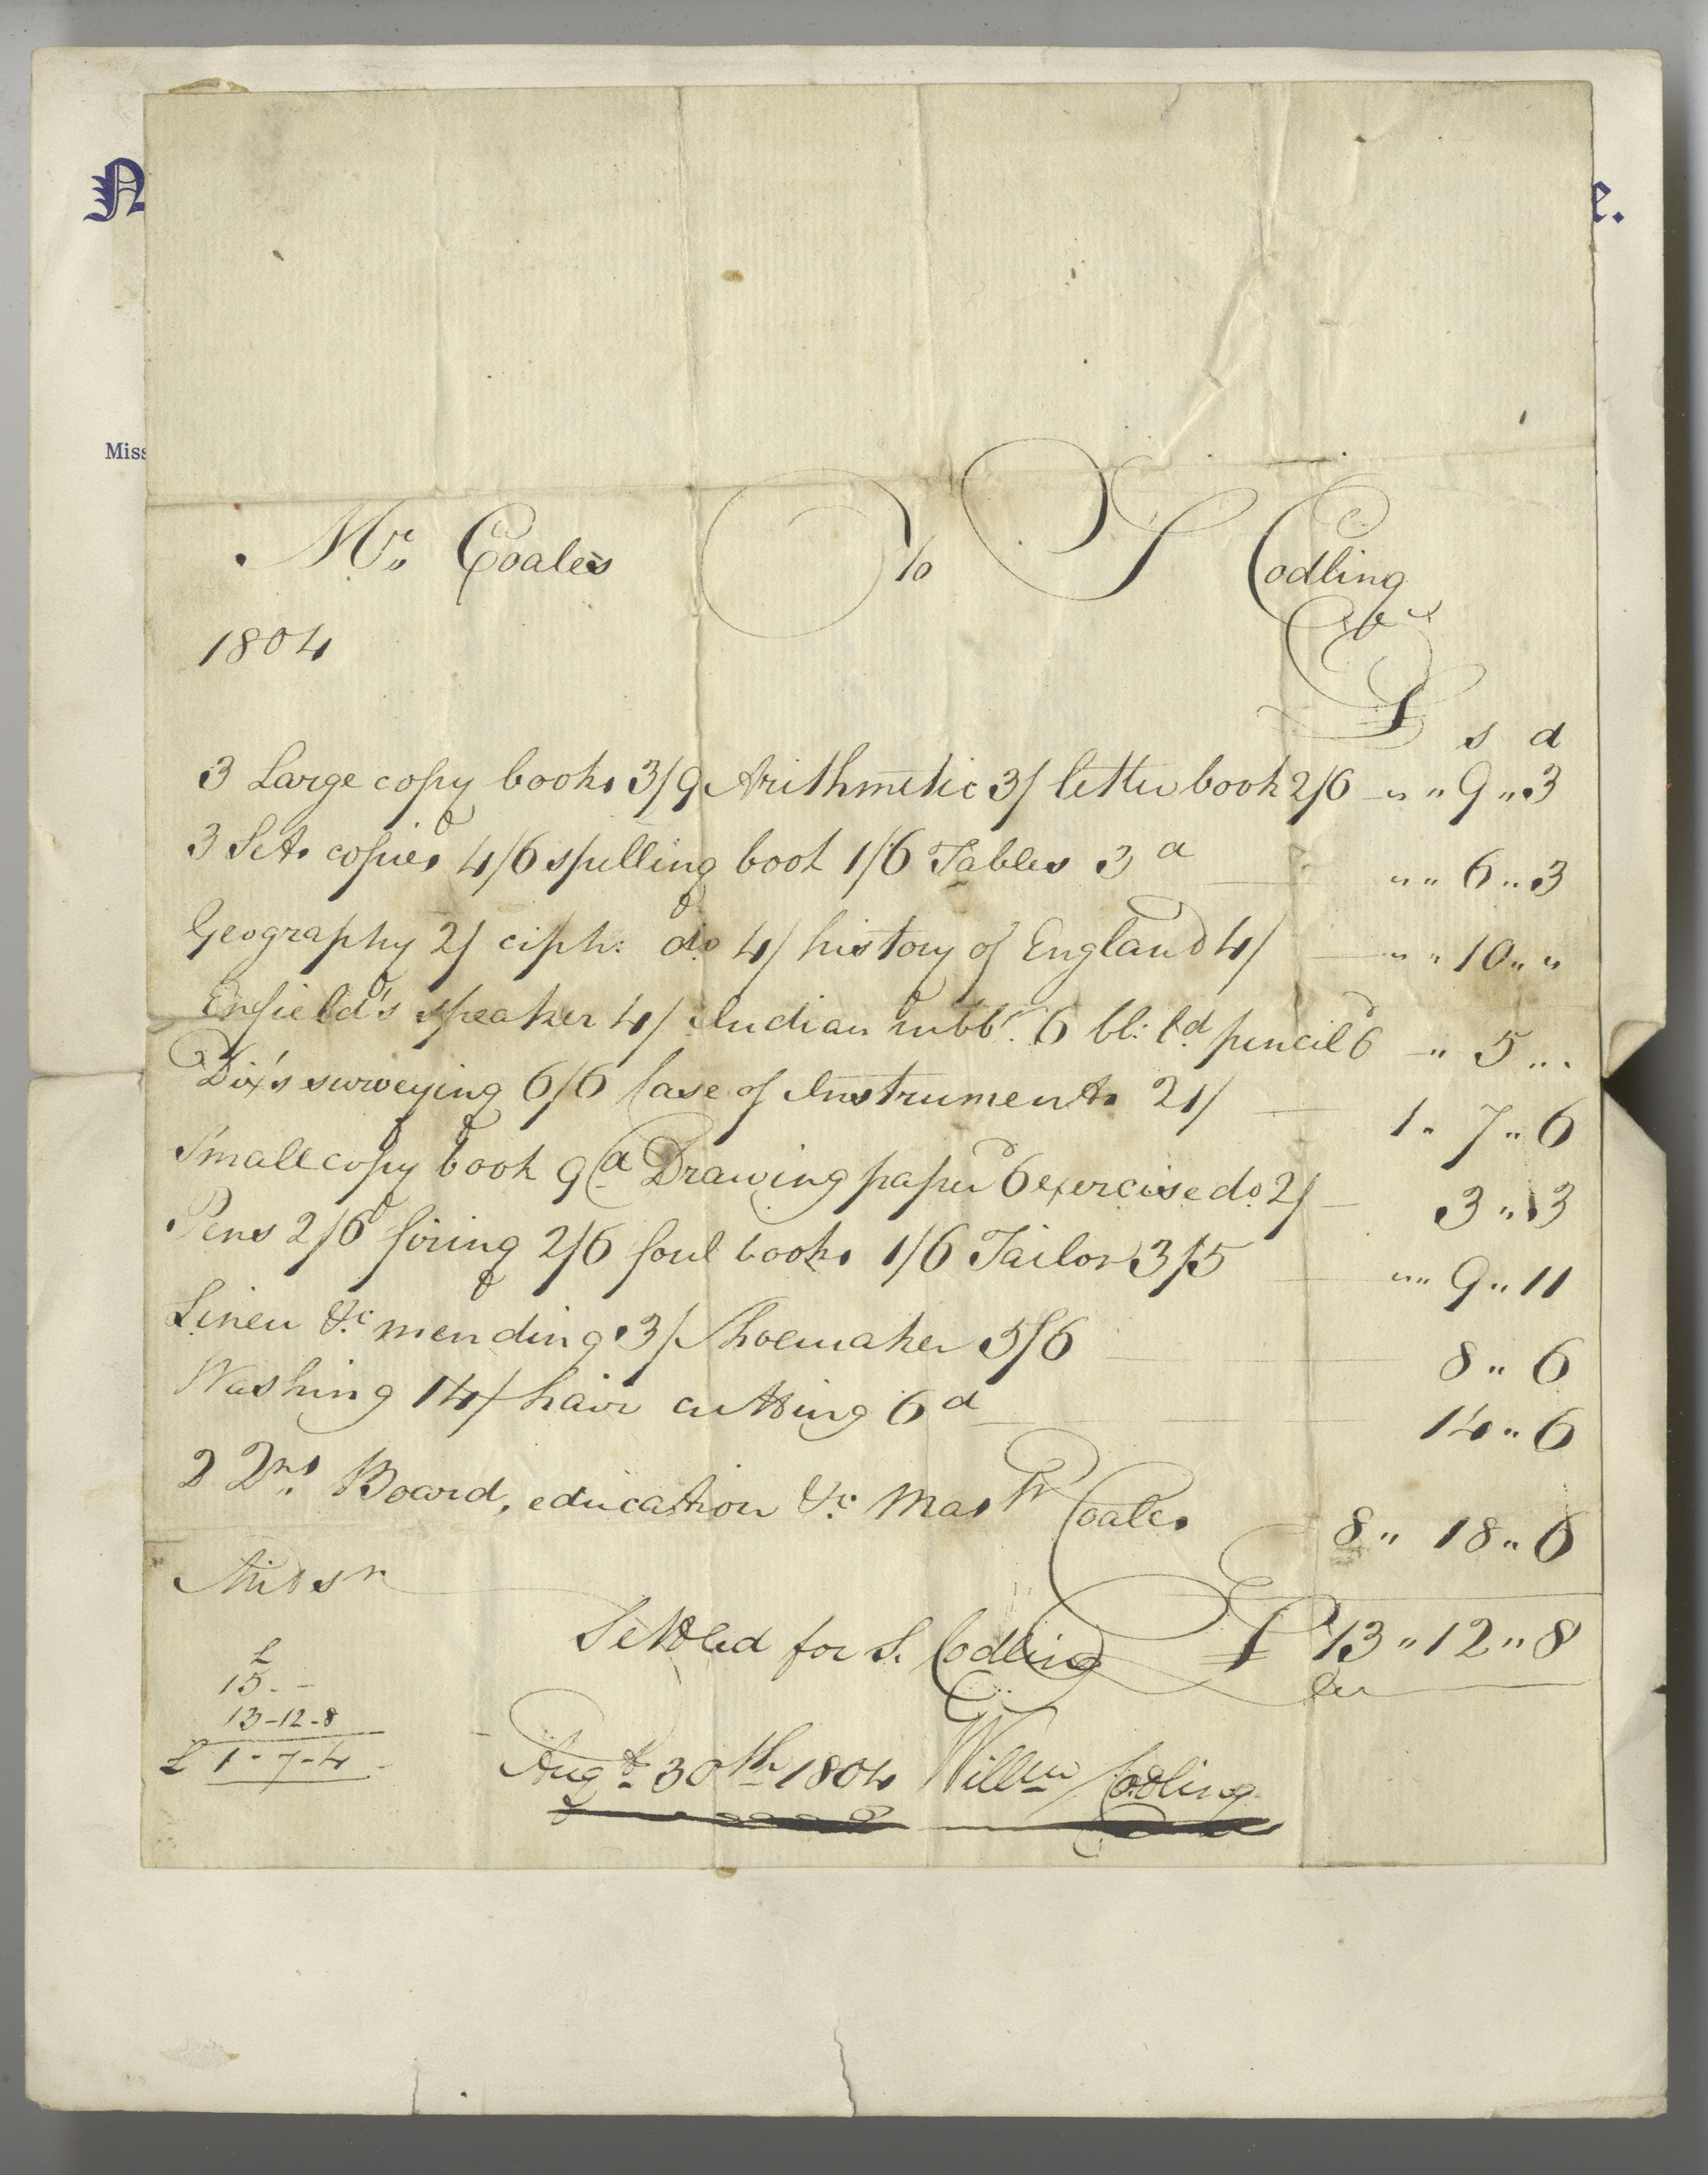 N
e.
Miss
Mr. Coales To S Codling
1804
£ s d
3 Large copy books 3/9 Arithmetic 3/ letter book 2/6 — " " 9 " 3
3 Sets copies 4/6 spelling book 1/6 Tables 3d — " " 6 " 3
Geography 2/ ciph: do 4/ history of England 4/ — " " 10 " "
Enfield's speaker 4/ Indian rubbr. 6 bl: ld pencil 6 — " 5 " "
Dix's surveying 6/6 Case of Instruments 21/ — 1 " 7 " 6
Small copy book 9d Drawing paper 6 exercise do. 2/ — 3 " 3
Pens 2/6 firing 2/6 foul books 1/6 Tailor 3/5 — " " 9 " 11
Linen &c mending 3/ Shoemaker 5/6 — 8 " 6
Washing 14/ hair cutting 6d — 14 " 6
2 Qrs. Board, education &c. Mastr Coales 8 " 18 " 6
£ 13 " 12 " 8
Settled for S. Codling
£
15 - -
13-12-8
£ 1-7-4
Augt. 30th 1804 Willm Codling